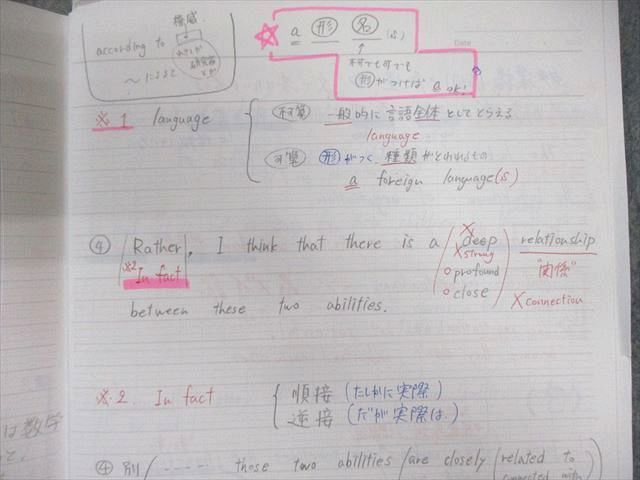 権威
according to
〜によると
☆ a 形 名 (s)
↑
不可でも可でも
形がつけば a ok!
Date
※1 language
不可算 一般的に言語全体としてとらえる
language
可算 形がつく、種類がとわれるもの
a foreign language(s)
④ Rather, I think that there is a deep relationship
※2 In fact
×strong
○profound
○close
"関係"
×connection
between these two abilities.
※2. In fact
順接 (たしかに実際)
逆接 (だが実際は)
は数学
④別 ( ---- these two abilities are closely related to
connected with